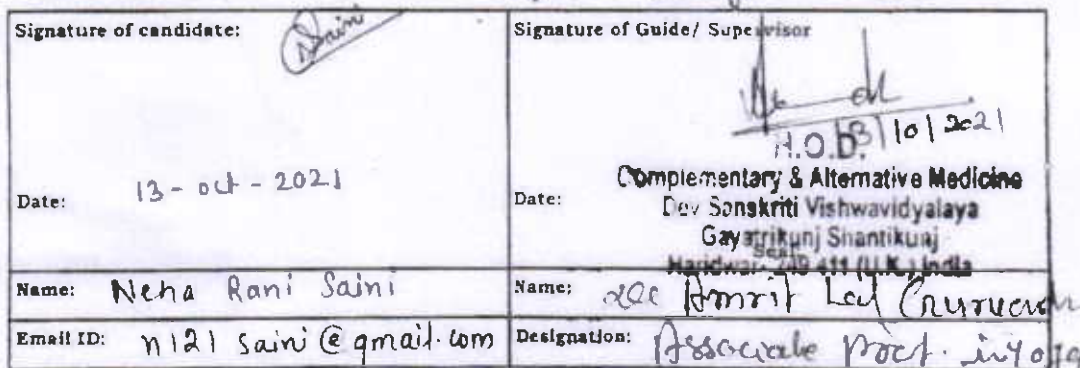 Signature of candidate:
Saini
Date: 13 - oct - 2021
Signature of Guide/ Supervisor
13/10/2021
H.O.D.
Complementary & Alternative Medicine
Dev Sanskriti Vishwavidyalaya
Gayatrikunj Shantikunj
Haridwar- 249 411 (U.K.) India
Date:
Seal:
Name: Neha Rani Saini
Name: Amrit Lal
Email ID: n121saini@gmail.com
Designation: Associate Prof. in Yoga